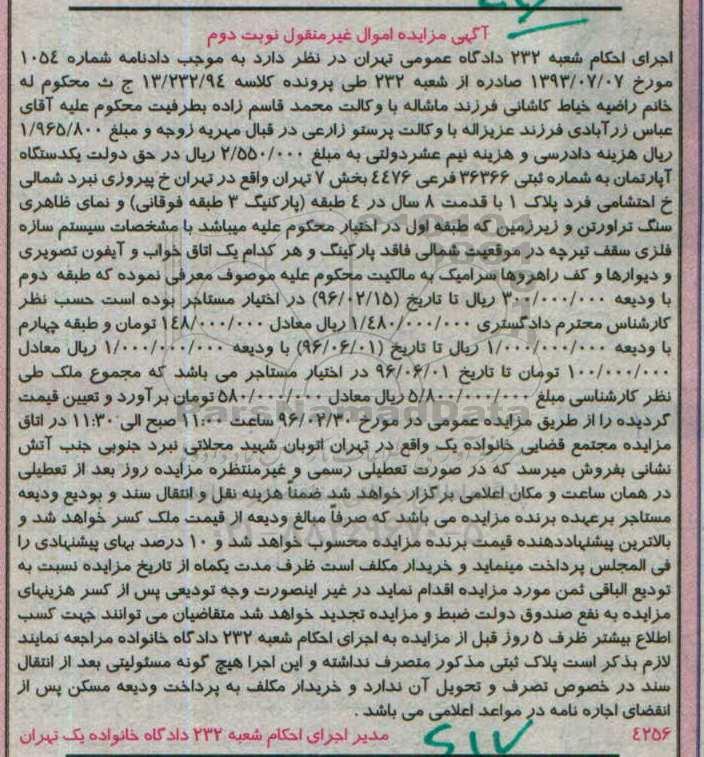 آگهی مزایده اموال غیرمنقول نوبت دوم
اجرای احکام شعبه ۲۳۲ دادگاه عمومی تهران در نظر دارد به موجب دادنامه شماره ۱۰۵٤
مورخ ۱۳۹۳/۰۷/۰۷ صادره از شعبه ۲۳۲ طی پرونده کلاسه ۱۳/۲۳۲/۹٤ ج ث محکوم له
خانم راضیه خیاط کاشانی فرزند ماشاله با وکالت محمد قاسم زاده بطرفیت محکوم علیه آقای
عباس زرآبادی فرزند عزیزاله با وکالت پرستو زارعی در قبال مهریه زوجه و مبلغ ۱/۹۶۵/۸۰۰
ریال هزینه دادرسی و هزینه نیم عشردولتی به مبلغ ۲/۵۵۰/۰۰۰ ریال در حق دولت یکدستگاه
آپارتمان به شماره ثبتی ۳۶۳۶۶ فرعی ٤٤۷۶ بخش ۷ تهران واقع در تهران خ پیروزی نبرد شمالی
خ احتشامی فرد پلاک ۱ با قدمت ۸ سال در ٤ طبقه (پارکنیگ ۳ طبقه فوقانی) و نمای ظاهری
سنگ تراورتن و زیرزمین که طبقه اول در اختیار محکوم علیه میباشد با مشخصات سیستم سازه
فلزی سقف تیرچه در موقعیت شمالی فاقد پارکینگ و هر کدام یک اتاق خواب و آیفون تصویری
و دیوارها و کف راهروها سرامیک به مالکیت محکوم علیه موصوف معرفی نموده که طبقه دوم
با ودیعه ۳۰۰/۰۰۰/۰۰۰ ریال تا تاریخ (۹۶/۰۲/۱۵) در اختیار مستاجر بوده است حسب نظر
کارشناس محترم دادگستری ۱/٤۸۰/۰۰۰/۰۰۰ ریال معادل ۱٤۸/۰۰۰/۰۰۰ تومان و طبقه چهارم
با ودیعه ۱/۰۰۰/۰۰۰/۰۰۰ ریال تا تاریخ (۹۶/۰۶/۰۱) با ودیعه ۱/۰۰۰/۰۰۰/۰۰۰ ریال معادل
۱۰۰/۰۰۰/۰۰۰ تومان تا تاریخ ۹۶/۰۶/۰۱ در اختیار مستاجر می باشد که مجموع ملک طی
نظر کارشناسی مبلغ ۵/۸۰۰/۰۰۰/۰۰۰ ریال معادل ۵۸۰/۰۰۰/۰۰۰ تومان برآورد و تعیین قیمت
گردیده را از طریق مزایده عمومی در مورخ ۹۶/۰۲/۳۰ ساعت ۱۱:۰۰ صبح الی ۱۱:۳۰ در اتاق
مزایده مجتمع قضایی خانواده یک واقع در تهران اتوبان شهید محلاتی نبرد جنوبی جنب آتش
نشانی بفروش میرسد که در صورت تعطیلی رسمی و غیرمنتظره مزایده روز بعد از تعطیلی
در همان ساعت و مکان اعلامی برگزار خواهد شد ضمناً هزینه نقل و انتقال سند و بودیع ودیعه
مستاجر برعهده برنده مزایده می باشد که صرفاً مبالغ ودیعه از قیمت ملک کسر خواهد شد و
بالاترین پیشنهاددهنده قیمت برنده مزایده محسوب خواهد شد و ۱۰ درصد بهای پیشنهادی را
فی المجلس پرداخت مینماید و خریدار مکلف است ظرف مدت یکماه از تاریخ مزایده نسبت به
تودیع الباقی ثمن مورد مزایده اقدام نماید در غیر اینصورت وجه تودیعی پس از کسر هزینهای
مزایده به نفع صندوق دولت ضبط و مزایده تجدید خواهد شد متقاضیان می توانند جهت کسب
اطلاع بیشتر ظرف ۵ روز قبل از مزایده به اجرای احکام شعبه ۲۳۲ دادگاه خانواده مراجعه نمایند
لازم بذکر است پلاک ثبتی مذکور متصرف نداشته و این اجرا هیچ گونه مسئولیتی بعد از انتقال
سند در خصوص تصرف و تحویل آن ندارد و خریدار مکلف به پرداخت ودیعه مسکن پس از
انقضای اجاره نامه در مواعد اعلامی می باشد .
٤۲۵۶ مدیر اجرای احکام شعبه ۲۳۲ دادگاه خانواده یک تهران
ParsNamadData